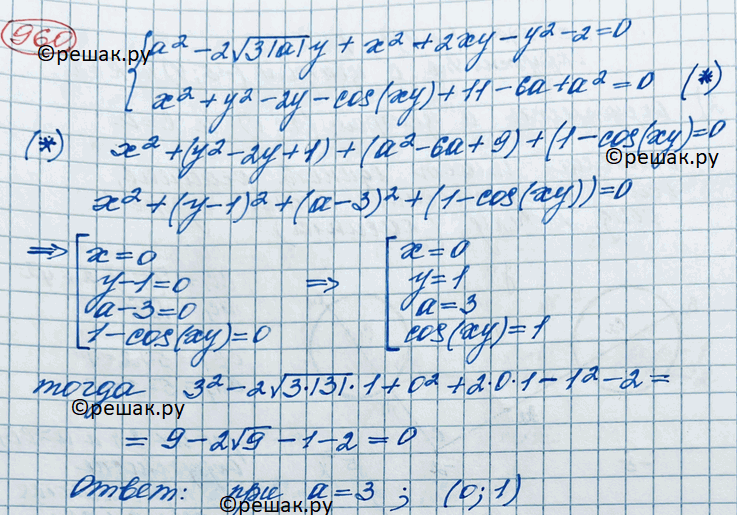 960 a² - 2√3|a| y + x² + 2xy - y² - 2 = 0
©решак.ру
x² + y² - 2y - cos(xy) + 11 - 6a + a² = 0 (*)
(*) x² + (y² - 2y + 1) + (a² - 6a + 9) + (1 - cos(xy) = 0
©решак.ру
x² + (y - 1)² + (a - 3)² + (1 - cos(xy)) = 0
⇒ [ x = 0
y - 1 = 0
a - 3 = 0
1 - cos(xy) = 0
⇒ [ x = 0
y = 1
a = 3
cos(xy) = 1
тогда 3² - 2√3·|3| · 1 + 0² + 2·0·1 - 1² - 2 =
©решак.ру
= 9 - 2√9 - 1 - 2 = 0
Ответ: при a = 3 ; (0; 1)
©решак.ру